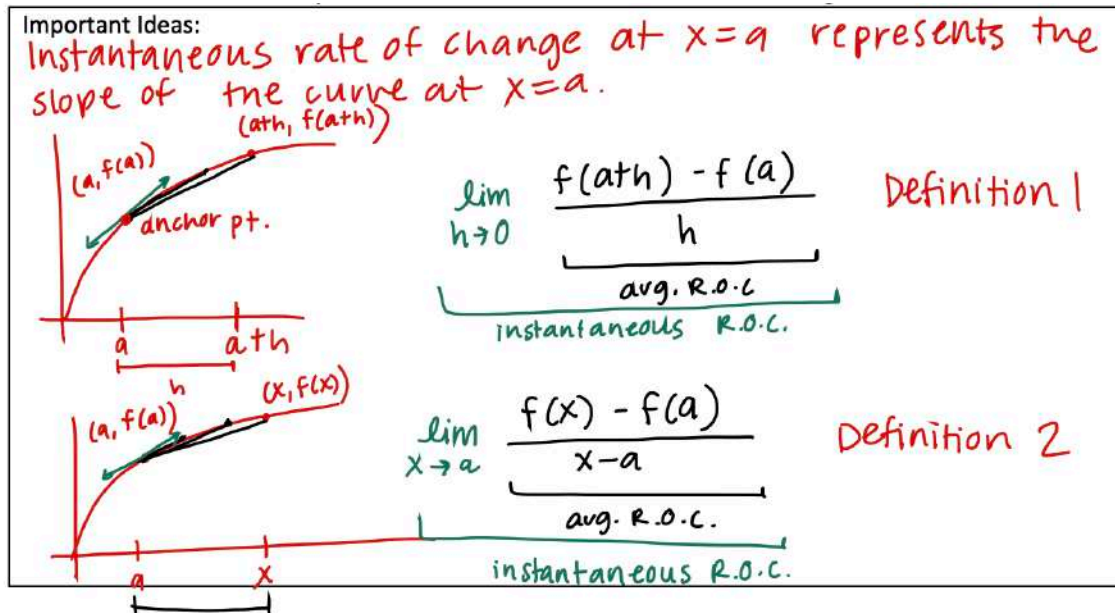 Important Ideas:
Instantaneous rate of change at x=a represents the
slope of the curve at x=a.
(a+h, f(a+h))
(a, f(a))
anchor pt.
a
a+h
h
lim
h→0
f(a+h) - f(a)
h
avg. R.O.C
instantaneous R.O.C.
Definition 1
(x, f(x))
(a, f(a))
a
x
lim
x→a
f(x) - f(a)
x-a
avg. R.O.C.
instantaneous R.O.C.
Definition 2